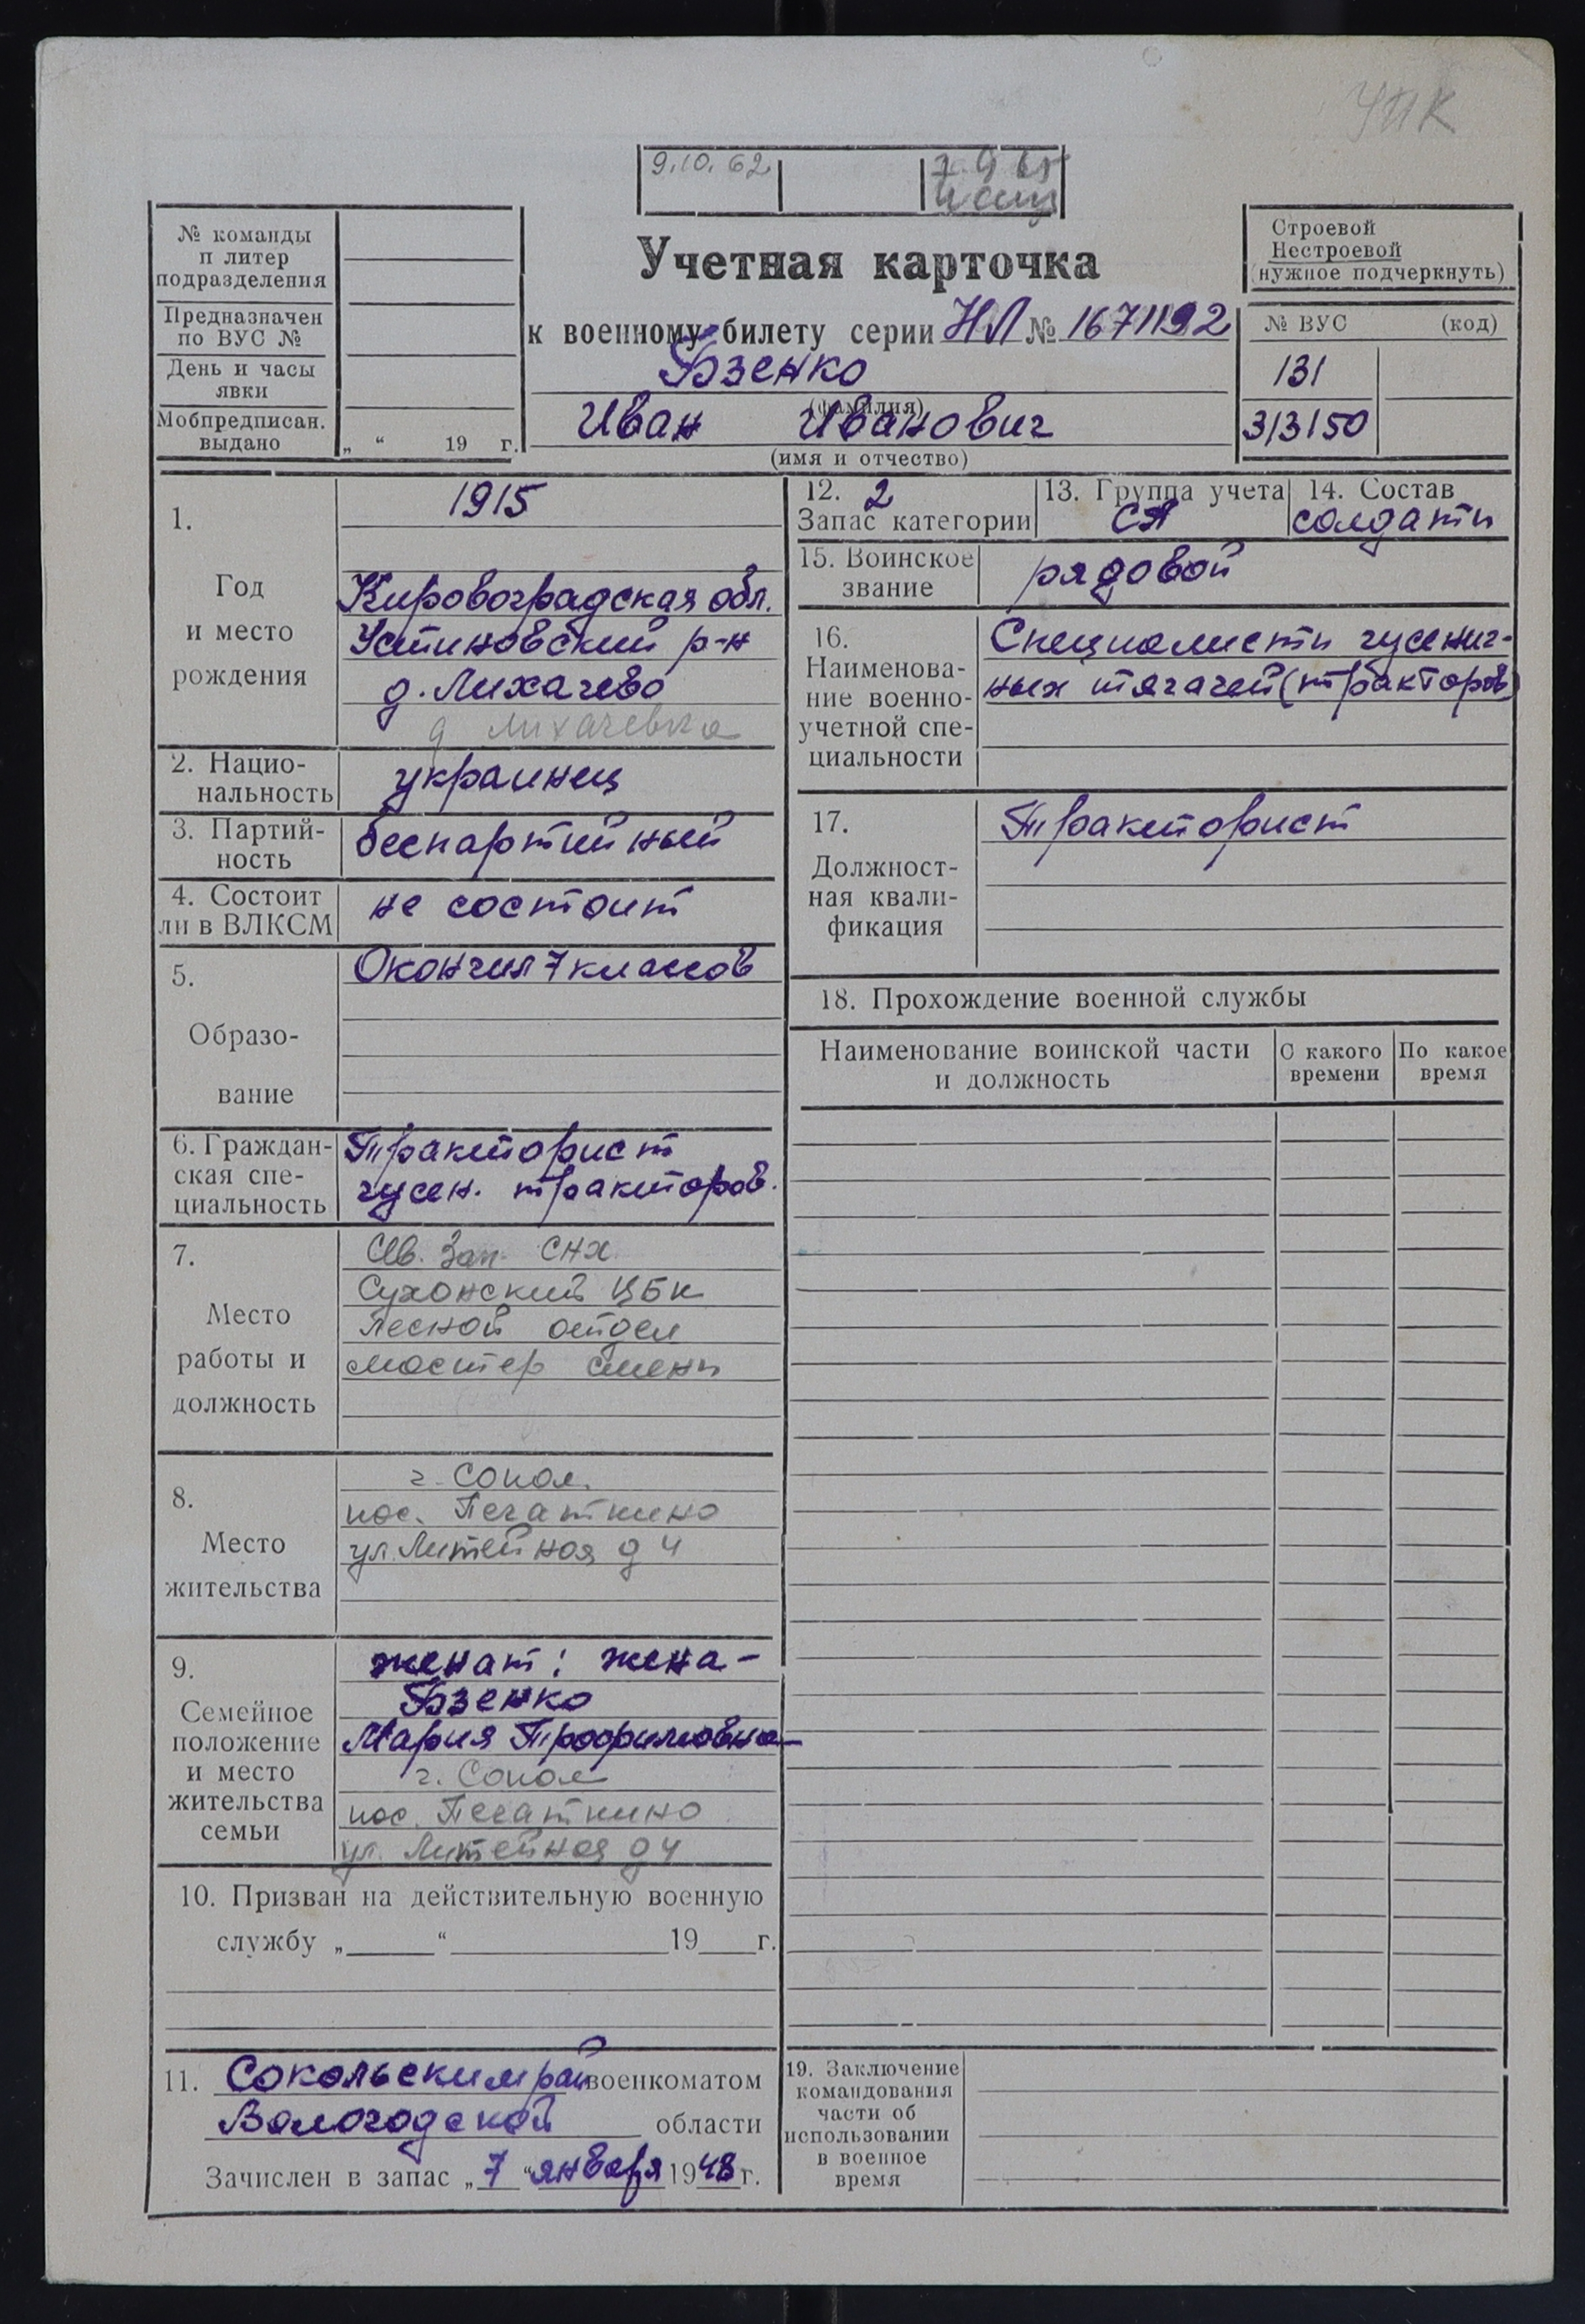 УПК
9.10.62
№ команды
п литер
подразделения
Предназначен
по ВУС №
День и часы
явки
Мобпредписан.
выдано „ “ 19 г.
Учетная карточка
к военному билету серии НЛ № 1671192
Бзенко
(фамилия)
Иван Иванович
(имя и отчество)
Строевой
Нестроевой
(нужное подчеркнуть)
№ ВУС (код)
131
3/3150
1.
Год
и место
рождения
1915
Кировоградская обл.
Устиновский р-н
д. Лихачево
д Лихачевка
2. Нацио-
нальность
украинец
3. Партий-
ность
беспартийный
4. Состоит
ли в ВЛКСМ
не состоит
5.
Образо-
вание
Окончил 7 классов
6. Граждан-
ская спе-
циальность
Тракторист
гусен. тракторов.
7.
Место
работы и
должность
Сев. Зап. СНХ
Сухонский ЦБК
Лесной отдел
мастер смены
8.
Место
жительства
г. Сокол.
пос. Печаткино
ул. Литейная д 4
9.
Семейное
положение
и место
жительства
семьи
женат: жена-
Бзенко
Мария Трофимовна-
г. Сокол
пос. Печаткино
ул. Литейная д 4
10. Призван на действительную военную
службу „ “ 19 г.
11. Сокольским рай военкоматом
Вологодской области
Зачислен в запас „ 7 “ января 1948 г.
12. 2
Запас категории
13. Группа учета
СА
14. Состав
солдаты
15. Воинское
звание
рядовой
16.
Наименова-
ние военно-
учетной спе-
циальности
Специалисты гусенич-
ных тягачей (тракторов)
17.
Должност-
ная квали-
фикация
Тракторист
18. Прохождение военной службы
Наименование воинской части
и должность
С какого
времени
По какое
время
19. Заключение
командования
части об
использовании
в военное
время